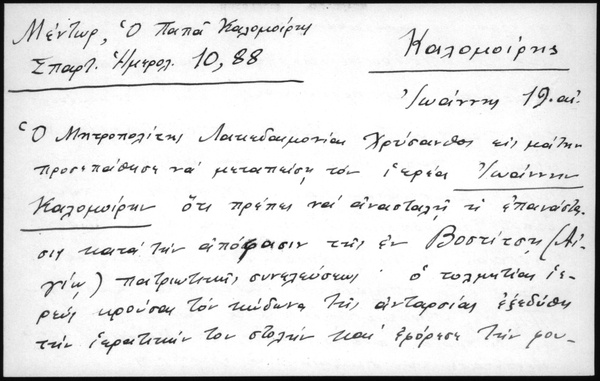 Μέντωρ, Ὁ Παπᾶ Καλομοίρης
Σπαρτ. Ἡμερολ. 10, 88
Καλομοίρης
Ἰωάννης 19. αἰ.
Ὁ Μητροπολίτης Λακεδαιμονίας Χρύσανθος εἰς μάτην
προσεπάθησε νά μεταπείσῃ τόν ἱερέα Ἰωάννην
Καλομοίρην ὅτι πρέπει νά ἀνασταλῇ ἡ ἐπανάστα-
σις κατά τήν ἀπόφασιν τῆς ἐν Βοστίτσῃ (Αἰ-
γίῳ) πατριωτικῆς συνελεύσεως · ὁ τολμητίας ἱε-
ρεύς κρούσας τόν κώδωνα τῆς ἀνταρσίας ἐξεδύθη
τήν ἱερατικήν του στολήν καί ἐφόρεσε τήν φου-